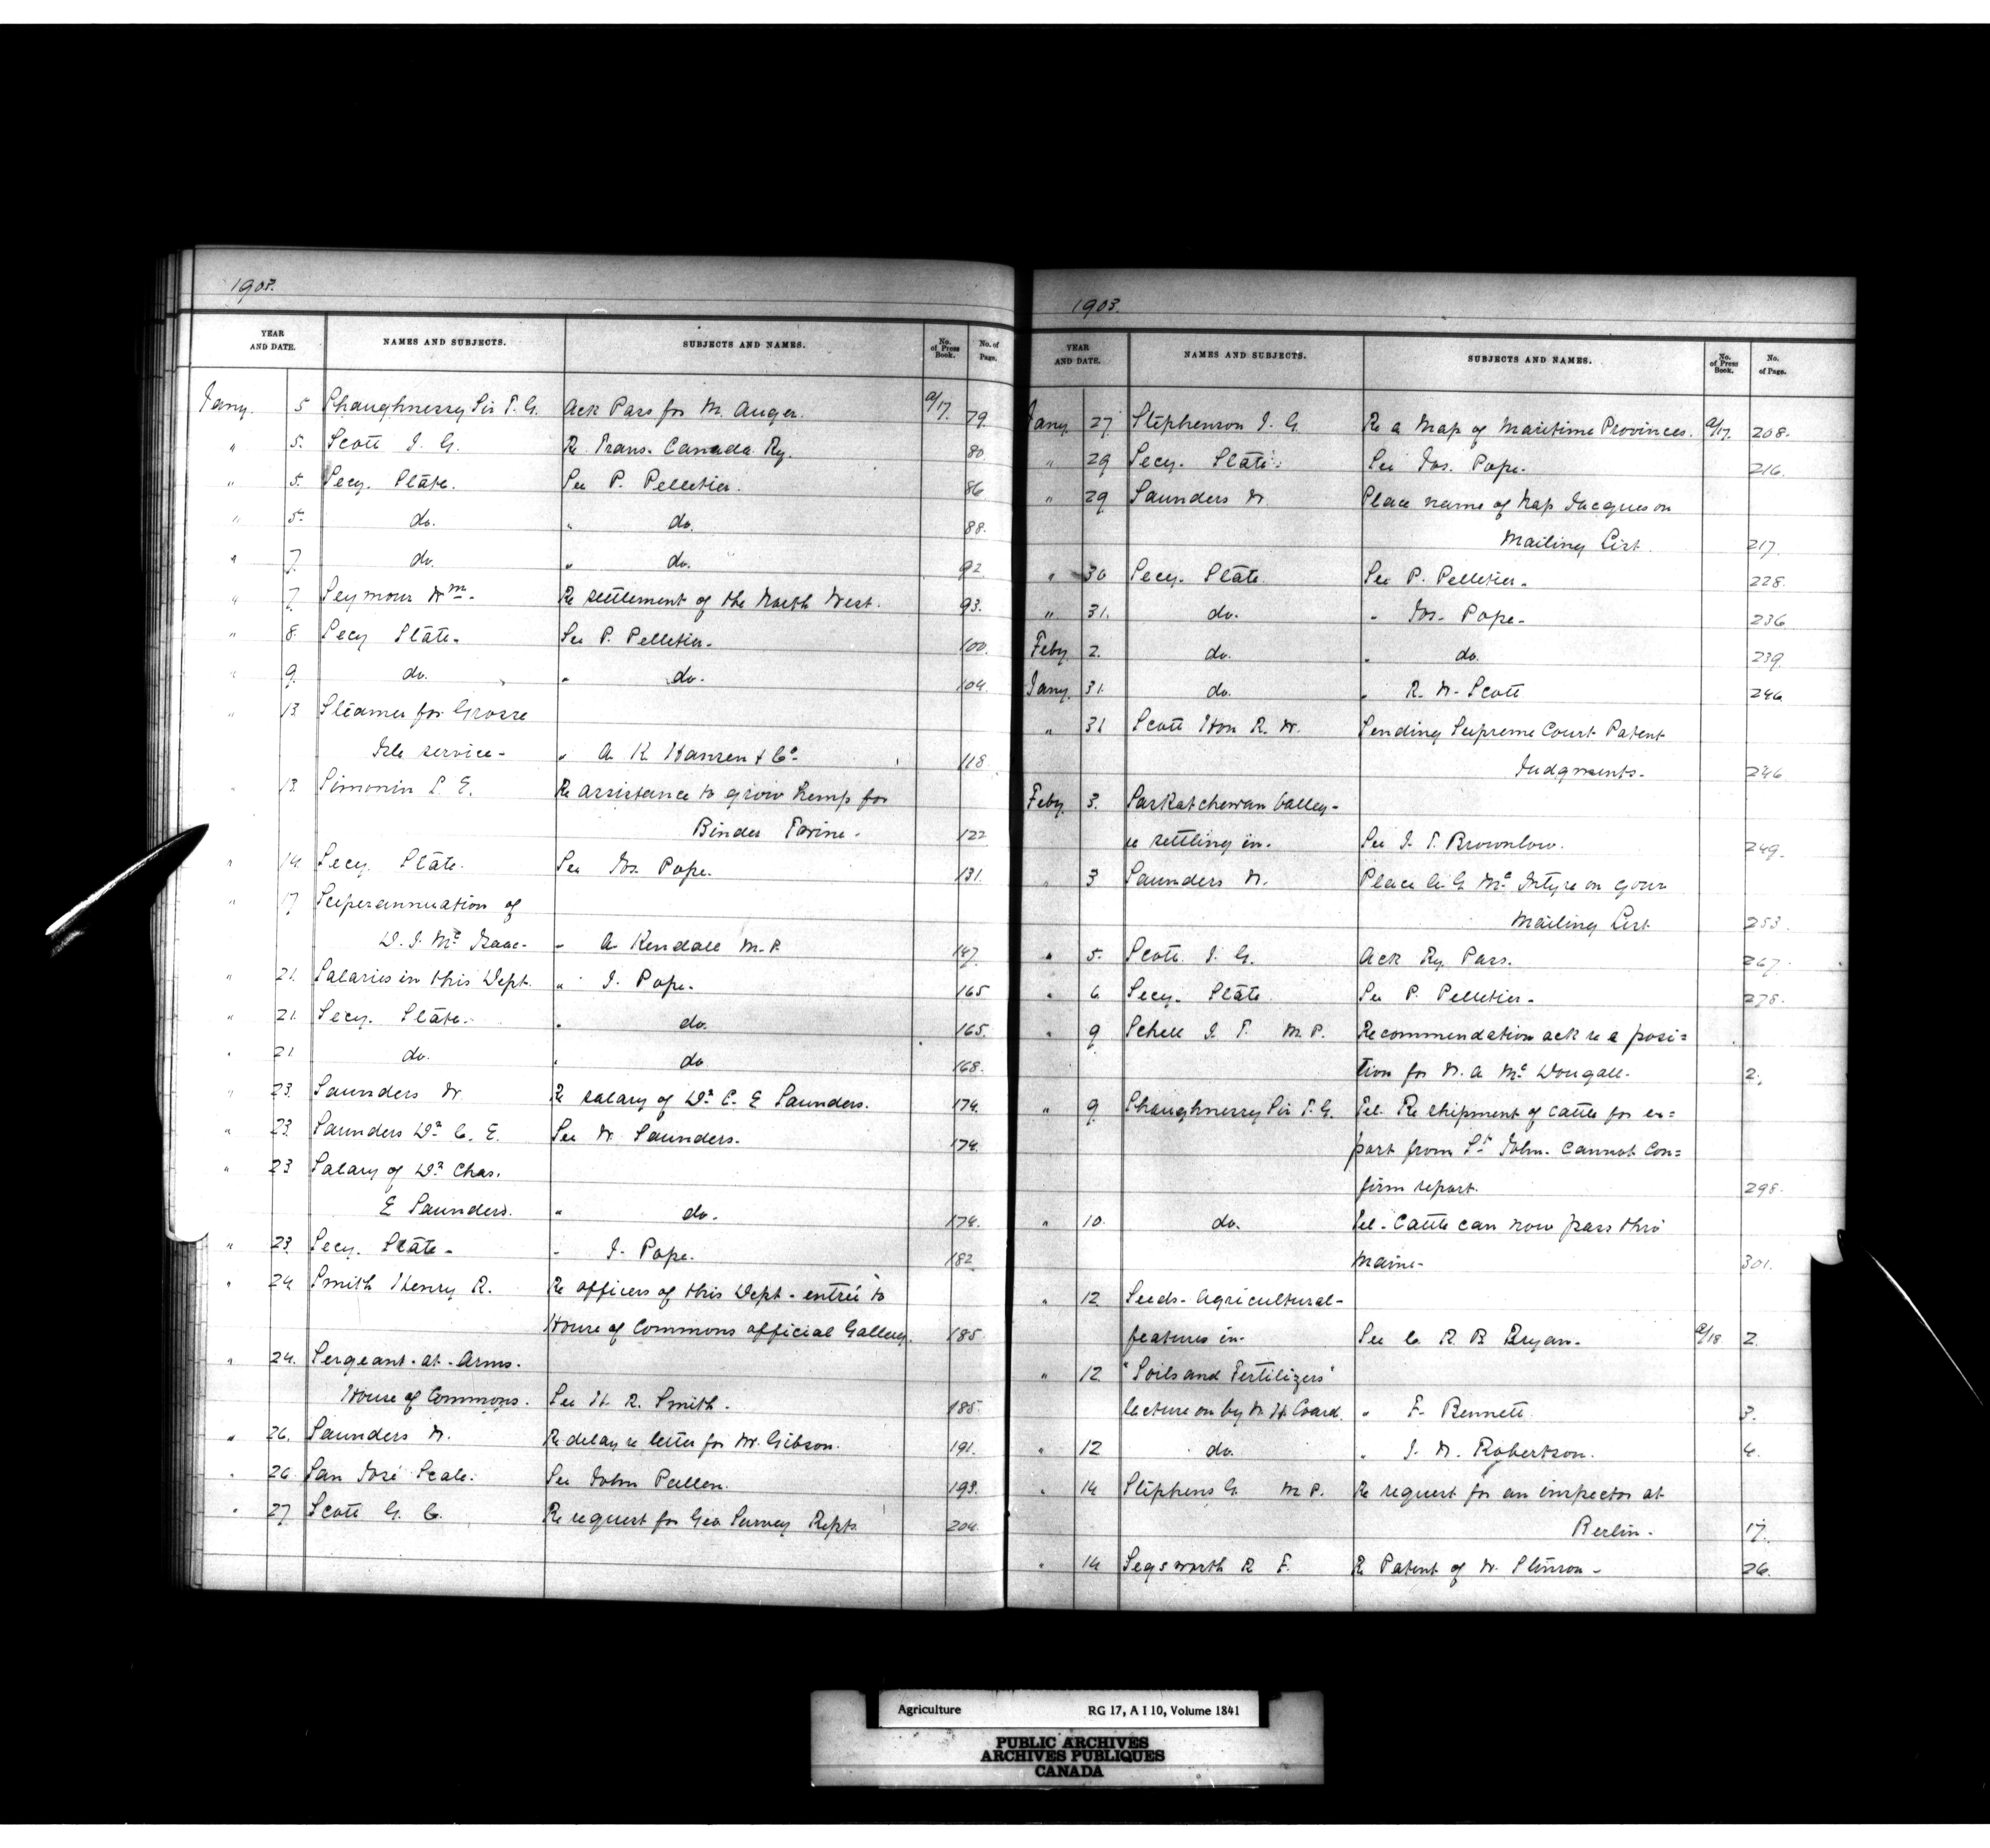 1903.
YEAR AND DATE. NAMES AND SUBJECTS. SUBJECTS AND NAMES. No. of Press Book. No. of Page.
Jany. 5 Shaughnessy Sir T. G. Ack Pass for M. Auger. a/17. 79.
" 5. Scott J. G. Re Trans. Canada Ry. 80.
" 5. Secy. State. See P. Pelletier. 86
" 5. do. " do. 88.
" 7. do. " do. 92
" 7. Seymour Wm. Re settlement of the North West. 93.
" 8. Secy State. See P. Pelletier. 100.
" 9. do. " do. 104.
" 13 Steamer for Grosse
Isle service - " A. K. Hansen & Co. 118
" 13. Simonin L. E. Re assistance to grow hemp for
Binder Twine. 122
" 14. Secy. State. See Jos. Pope. 131.
" 17 Superannuation of
D. J. Mc Isaac. " A. Kendall M.P. 147.
" 21. Salaries in this Dept. " J. Pope. 165
" 21. Secy. State. " do. 165.
" 21 do. " do 168.
" 23. Saunders W. Re salary of Dr. C. E Saunders. 174.
" 23. Saunders Dr. C. E. See W. Saunders. 174.
" 23 Salary of Dr. Chas.
E Saunders. " do. 174.
" 23. Secy. State - " J. Pope. 182
" 24 Smith Henry R. Re officers of this Dept. - entrée to
House of Commons official Gallery. 185.
" 24. Sergeant-at-Arms.
House of Commons. See H. R. Smith. 185.
" 26. Saunders W. Re delay re letter for Mr. Gibson. 191.
" 26 San José Scale. See John Pullen. 193.
" 27 Scott G. C. Re request for Geo Survey Repts 204.
1903.
YEAR AND DATE. NAMES AND SUBJECTS. SUBJECTS AND NAMES. No. of Press Book. No. of Page.
Jany. 27 Stephenson J. G. Re a Map of Maritime Provinces. a/17. 208.
" 29 Secy. State. See Jos. Pope. 216.
" 29 Saunders W. Place name of Nap Jacques on
Mailing List. 217.
" 30 Secy. State. See P. Pelletier. 228.
" 31. do. " Jos. Pope. 236
Feby 2. do. " do. 239.
Jany. 31. do. " R. W. Scott 246
" 31 Scott Hon R. W. Sending Supreme Court Patent
Judgments. 246
Feby 3. Saskatchewan Valley -
re settling in. See J. T. Brownlow. 249.
" 3 Saunders W. Place A. G. Mc Intyre on your
Mailing List 253.
" 5. Scott J. G. Ack Ry Pass. 267.
" 6 Secy. State. See P. Pelletier. 278.
" 9 Schell J. T. M.P. Recommendation ack re a posi=
tion for N. A. Mc Dougall. 2.
" 9 Shaughnessy Sir T. G. Tel. Re shipment of cattle for ex=
port from St. John. Cannot Con=
firm report. 298.
" 10. do. Tel. Cattle can now pass thro'
Maine. 301.
" 12 Seeds - Agricultural -
features in. See C. R. B Bryan. a/18 2.
" 12 "Soils and Fertilizers"
lecture on by W. H. Coard. " F. Bennett. 3.
" 12 do. " J. W. Robertson. 4.
" 14 Stephens G. M.P. Re request for an inspector at
Berlin. 17.
" 14 Segsworth R F. Re Patent of W. Stinson - 26.
Agriculture RG 17, A I 10, Volume 1841
PUBLIC ARCHIVES
ARCHIVES PUBLIQUES
CANADA